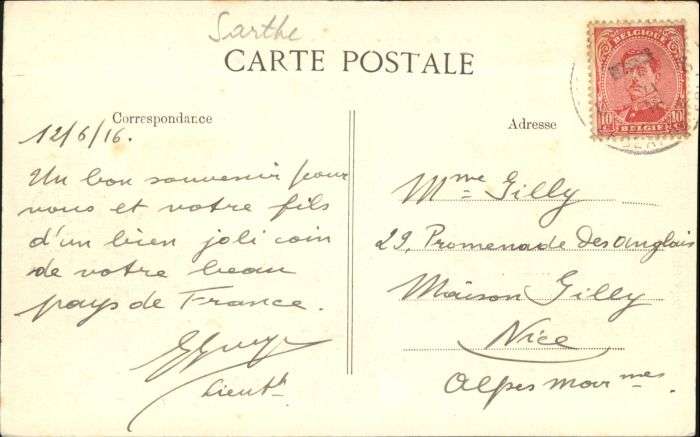 Sarthe
CARTE POSTALE
BELGIQUE
10 10
BELGIË
Correspondance
Adresse
12/6/16.
Un bon souvenir pour
vous et votre fils
d'un bien joli coin
de votre beau
pays de France.
Lieutt
Mme Gilly
29, Promenade des anglais
Maison Gilly
Nice
Alpes marmes